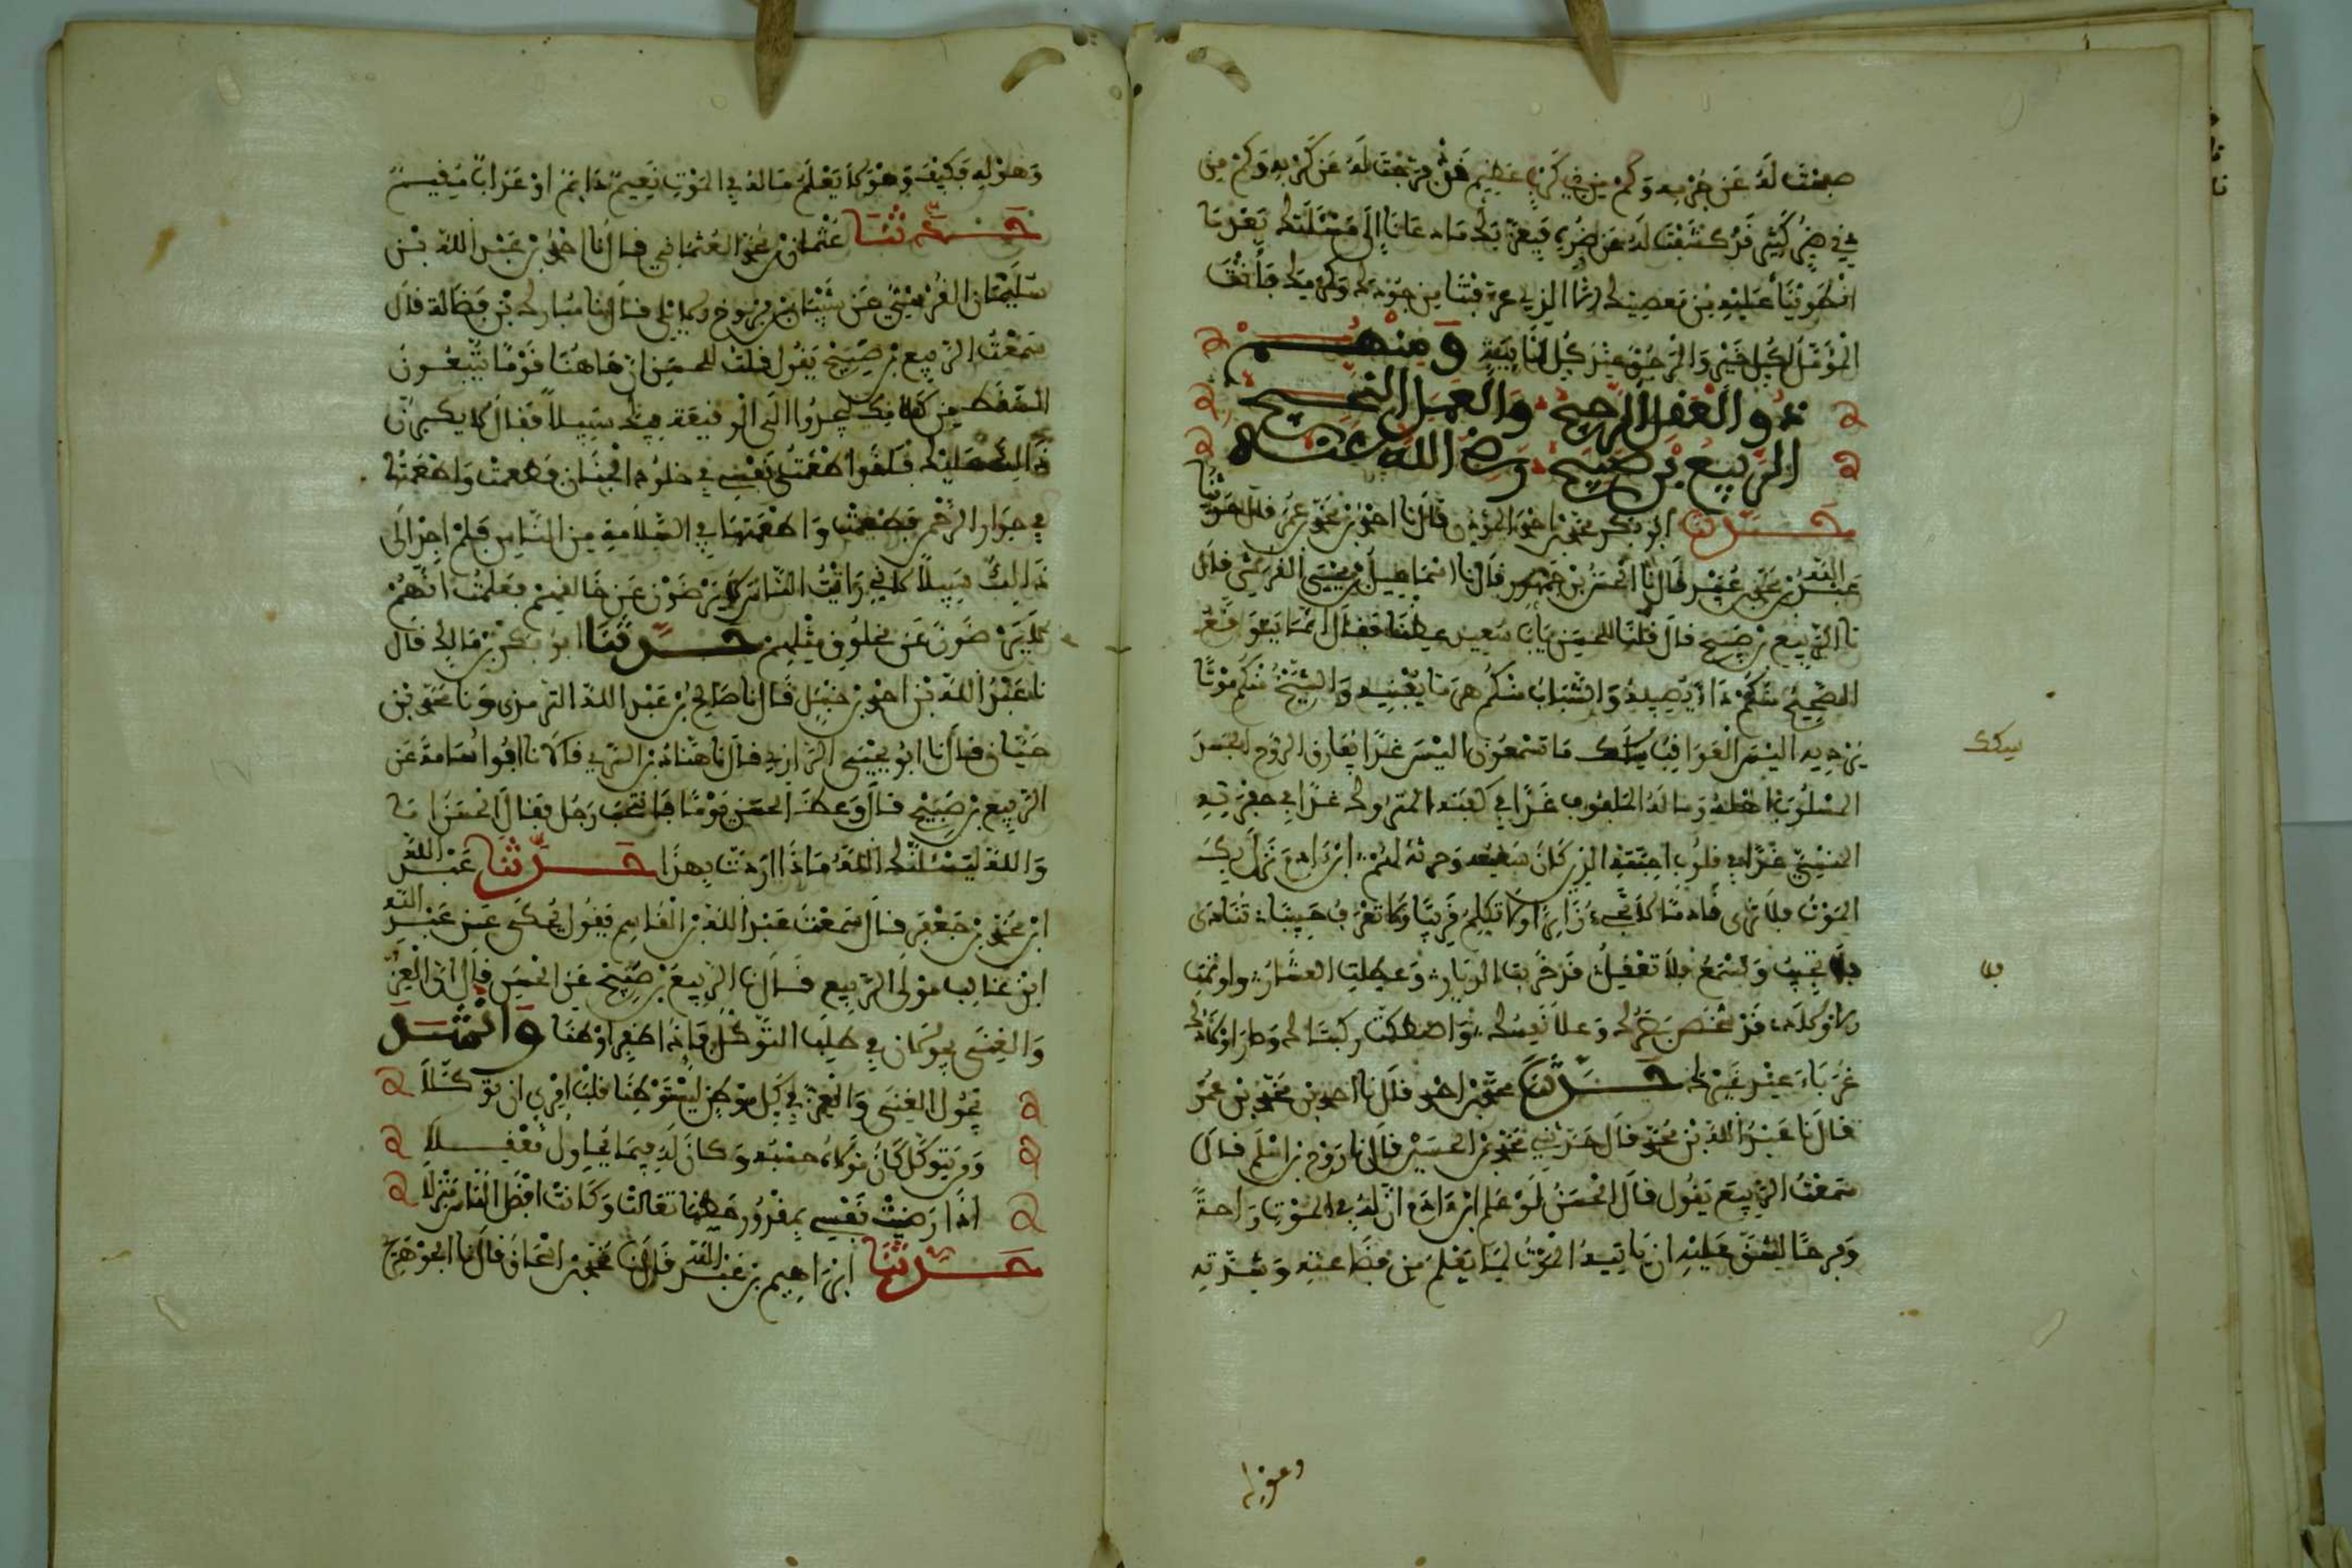 صفحت له عن جرمه وكم من ذي كرب عظيم قد فرجت له عن كربه وكم من
ذي ضر كثير قد كشفت له عن ضره فبعزتك ما دعانا إلى مسئلتك بعد ما
انطوينا عليه من معصيتك إلا الذي عرفتنا من جودك وكرمك فأنت
المؤمل لكل خير والمرجو عند كل نائبة ومنهم
ذو العقل الرجيح والعمل النجيح
الربيع بن صبيح رضي الله عنه
حدثنا ابو بكر محمد بن احمد المؤذن قال نا احمد بن محمد بن عمر قال حدثنا
عبد الله بن محمد بن عبيد قال نا الحسن بن جهور قال نا اسماعيل بن يحيى القرشي قال
نا الربيع بن صبيح قال قلنا للحسن يا ابا سعيد عظنا فقال انما يتوقع
الصحيح منكم داء يصيبه والشاب منكم هرما يفنيه والشيخ منكم موتا
يرديه اليس العواقب ما تسمعون اليس غدا يفارق الروح الجسد
المسلوب اهله وماله الملفوف غدا في كفنه المتروك غدا في حفرته
المنسي غدا في قلوب احبته الذين كان سعيه وحزنه لهم ابن ادم نزل بك
الموت فلا ترى قادما ولا تجيء زائرا ولا تكلم قريبا ولا تعرف حبيبا تنادى
فلا تجيب وتسمع فلا تعقل قد خربت الديار وعطلت العشار وايتمت
الاولاد قد شخص بصرك وعلا نفسك واصطكت ركبتاك وصار اولادك
غرباء عند غيرك حدثنا محمد بن احمد قال نا احمد بن محمد بن عمر
قال نا عبد الله بن محمد قال حدثني محمد بن الحسين قال نا روح بن اسلم قال
سمعت الربيع يقول قال الحسن لو علم ابن ادم ان له في الموت راحة
وفرحا لشق عليه ان ياتيه الموت لما يعلم من فظاعته وشدته
وهوله
وهوله فكيف وهو لا يعلم ما له في الموت نعيم دايم او عذاب مقيم
حدثنا عثمان بن محمد العثماني قال نا احمد بن عبد الله بن
سليمان القرشي عن شيبان بن فروخ الايلي قال نا مبارك بن فضالة قال
سمعت الربيع بن صبيح يقول قلت للحسن ان هاهنا قوما يتبعون
السقط من كلامك ليجدوا الى الوقيعة فيك سبيلا فقال لا يكبرن
ذلك عليك فلقد اطمعت نفسي في خلود الجنان فطمعت واطمعتها
في جوار الرحمن فطمعت واطمعتها في السلامة من الناس فلم اجد الى
ذلك سبيلا لاني رايت الناس لا يرضون عن خالقهم فعلمت انهم
لا يرضون عن مخلوق مثلهم حدثنا ابو بكر بن مالك قال
نا عبد الله بن احمد بن حنبل قال نا صالح بن عبد الله الترمذي ونا محمد بن
حيان قال نا ابو يحيى الرازي قال نا هناد بن السري قالا نا ابو اسامة عن
الربيع بن صبيح قال وعظ الحسن يوما فانتحب رجل فقال الحسن اما
والله ليسئلنك الله ماذا اردت بهذا حدثنا عبد الله
ابن محمد بن جعفر قال سمعت عبد الله بن القاسم يقول يحكى عن عبد الله
ابن غالب مولى الربيع قال نا الربيع بن صبيح عن الحسن قال ان العز
والغنى يجولان في طلب التوكل فاذا ظفرا اوطنا وانشد
يجول الغنى والعز في كل موطن ليستوطنا قلب امرئ ان توكلا
ومن يتوكل كان مولاه حسبه وكان له فيما يحاول معقلا
اذا رضيت نفسي بمقدور حظها تعالت وكانت افضل الناس منزلا
حدثنا ابراهيم بن عبد الله قال نا محمد بن اسحاق قال نا الجوهري